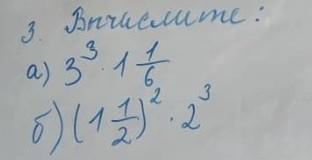 3. Вычислите:
а) 3³ · 1 1/6
б) (1 1/2)² · 2³